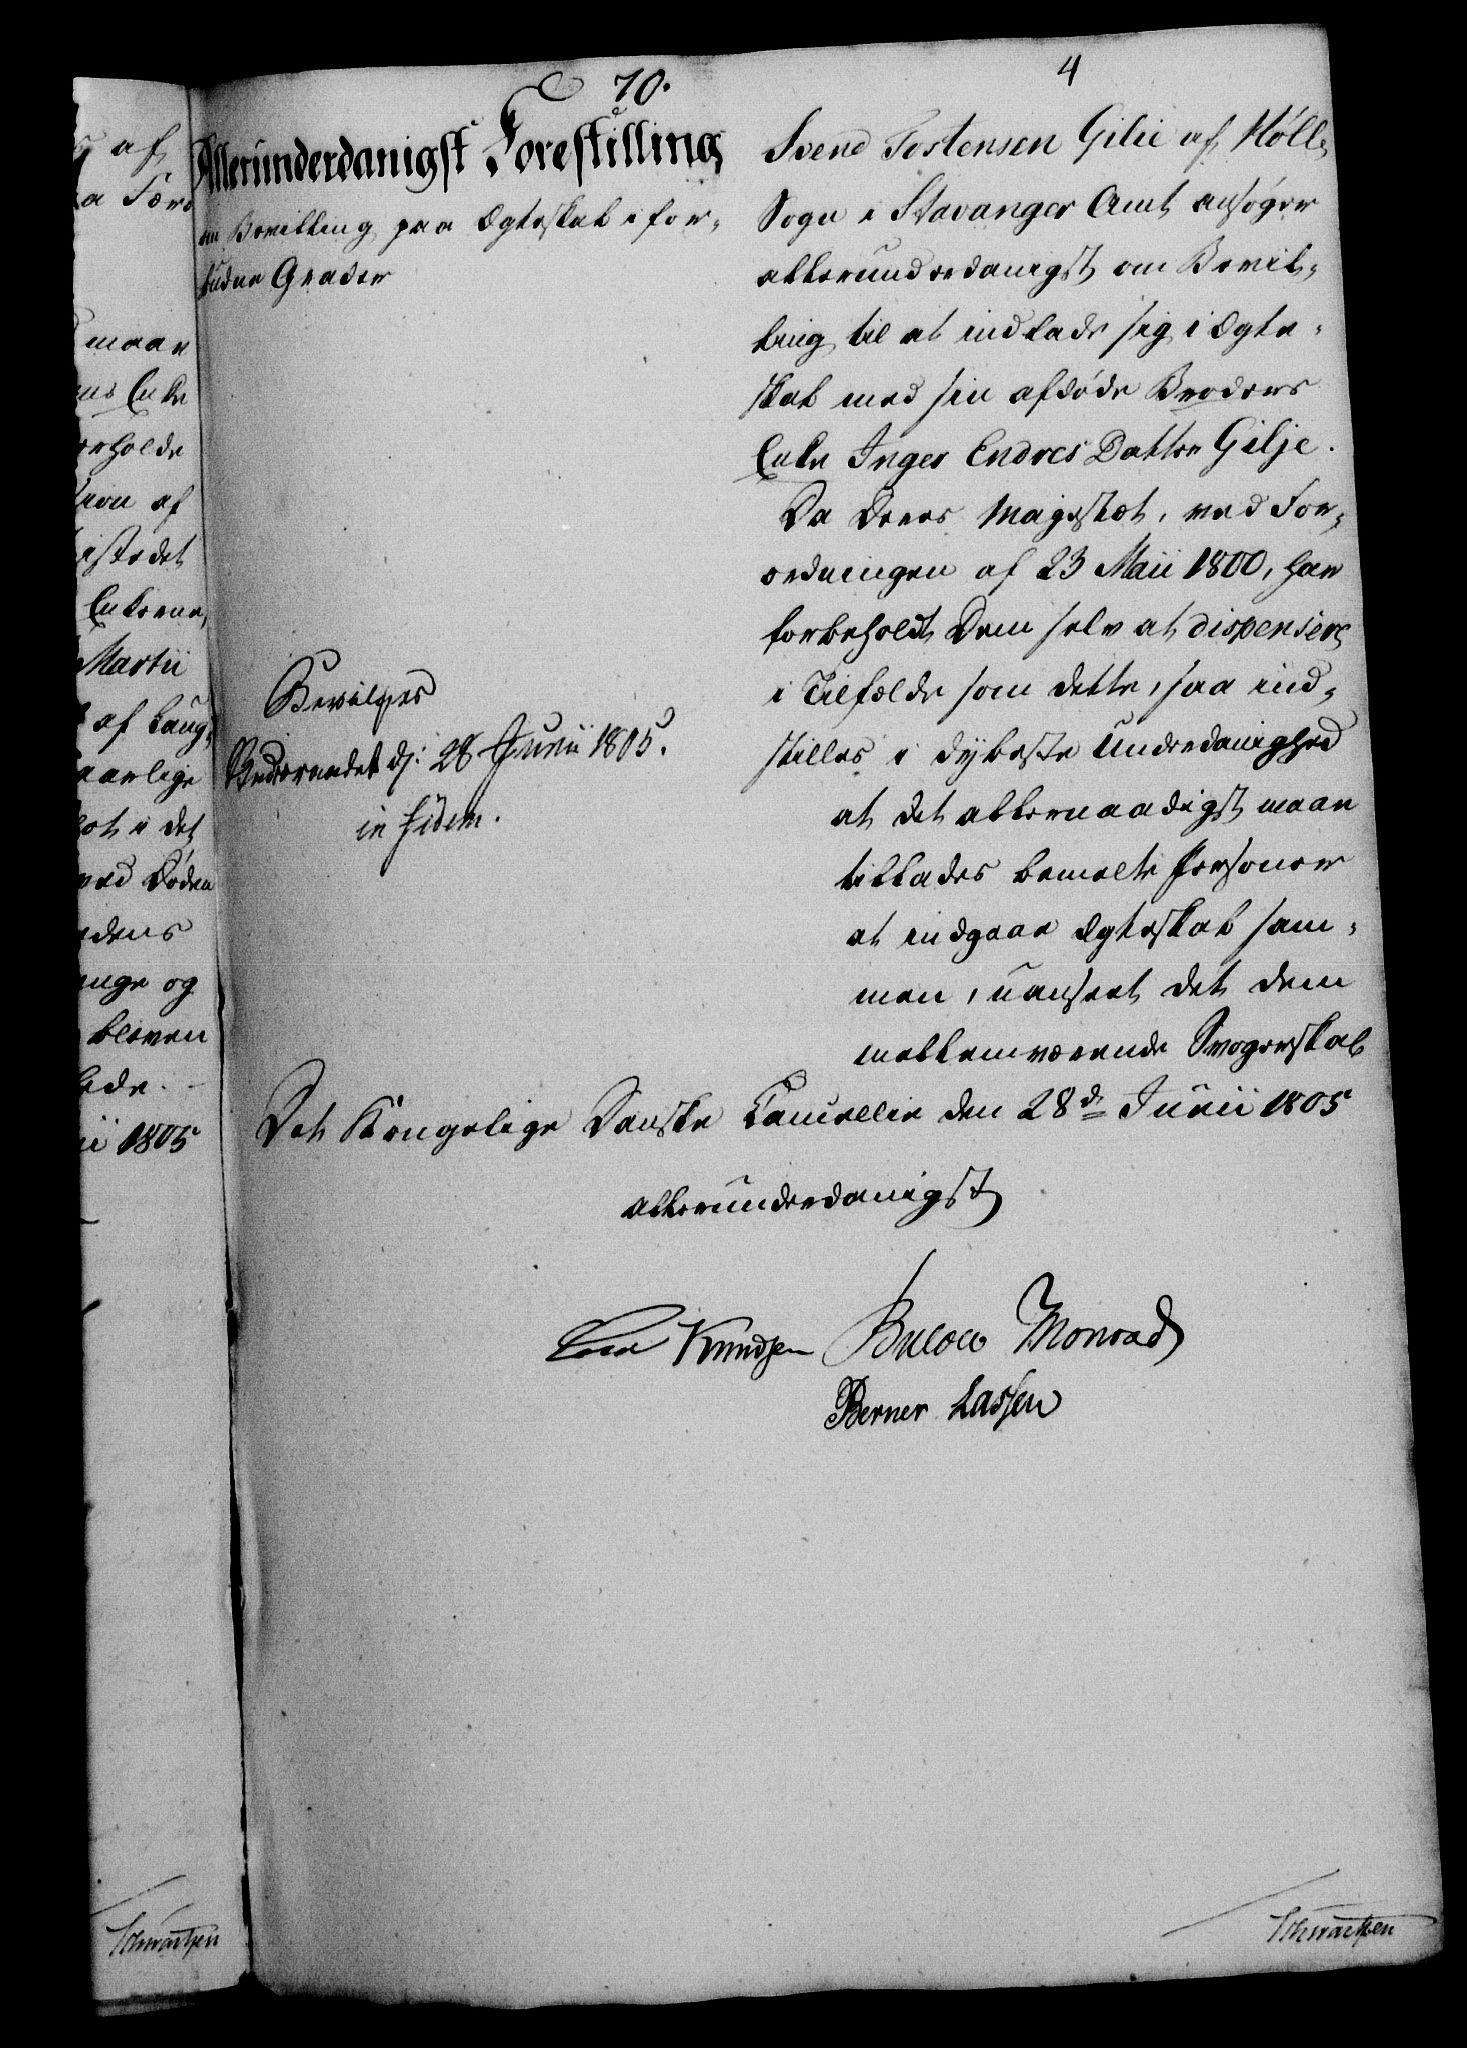 70.
4
Allerunderdanigst Forestilling
om Bevilling paa Ægteskab i for-
budne Grader
Svend Tostensen Gilie af Hølle
Sogn i Stavanger Amt ansøger
allerunderdanigst om Bevil-
ling til at indlade sig i Ægte-
skab med sin afdøde Broders
Enke Inger Endres Datter Gilje.
Da Deres Majestæt, ved For-
ordningen af 23 Maii 1800, har
forbeholdt Dem selv at dispensere
i Tilfælde som dette, saa ind-
stilles i dybeste Underdanighed
at det allernaadigst maae
tillades bemelte Personer
at indgaae Ægteskab sam-
men, uanseet det dem
mellemværende Svogerskab
Bevilges
Frederiksberg d: 28 Junii 1805.
in fidem.
Det Kongelige Danske Cancellie den 28de Junii 1805
allerunderdanigst
Knudsen Bülow Monrad
Berner Lassen
Schwartzen
af
maae
Enke
af
istedet
Enkerne,
Martii
af Laug-
i det
ved Døden
og
bleven
1805
Schwartzen